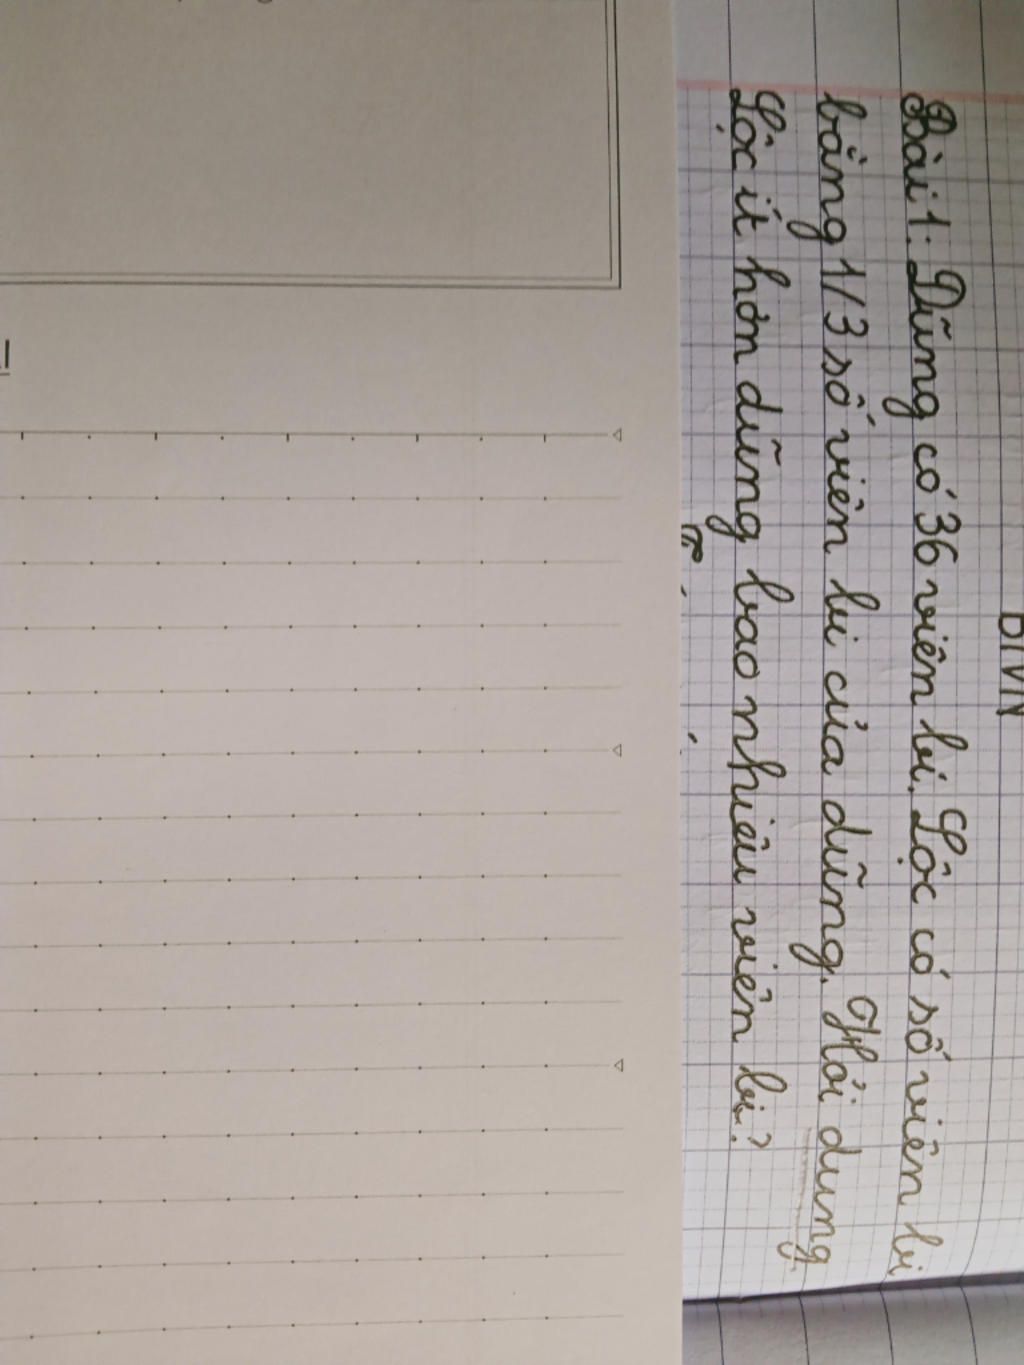 Bài 1: Dũng có 36 viên bi. Lộc có số viên bi
bằng 1/3 số viên bi của dũng. Hỏi dung
Lộc ít hơn dũng bao nhiêu viên bi?